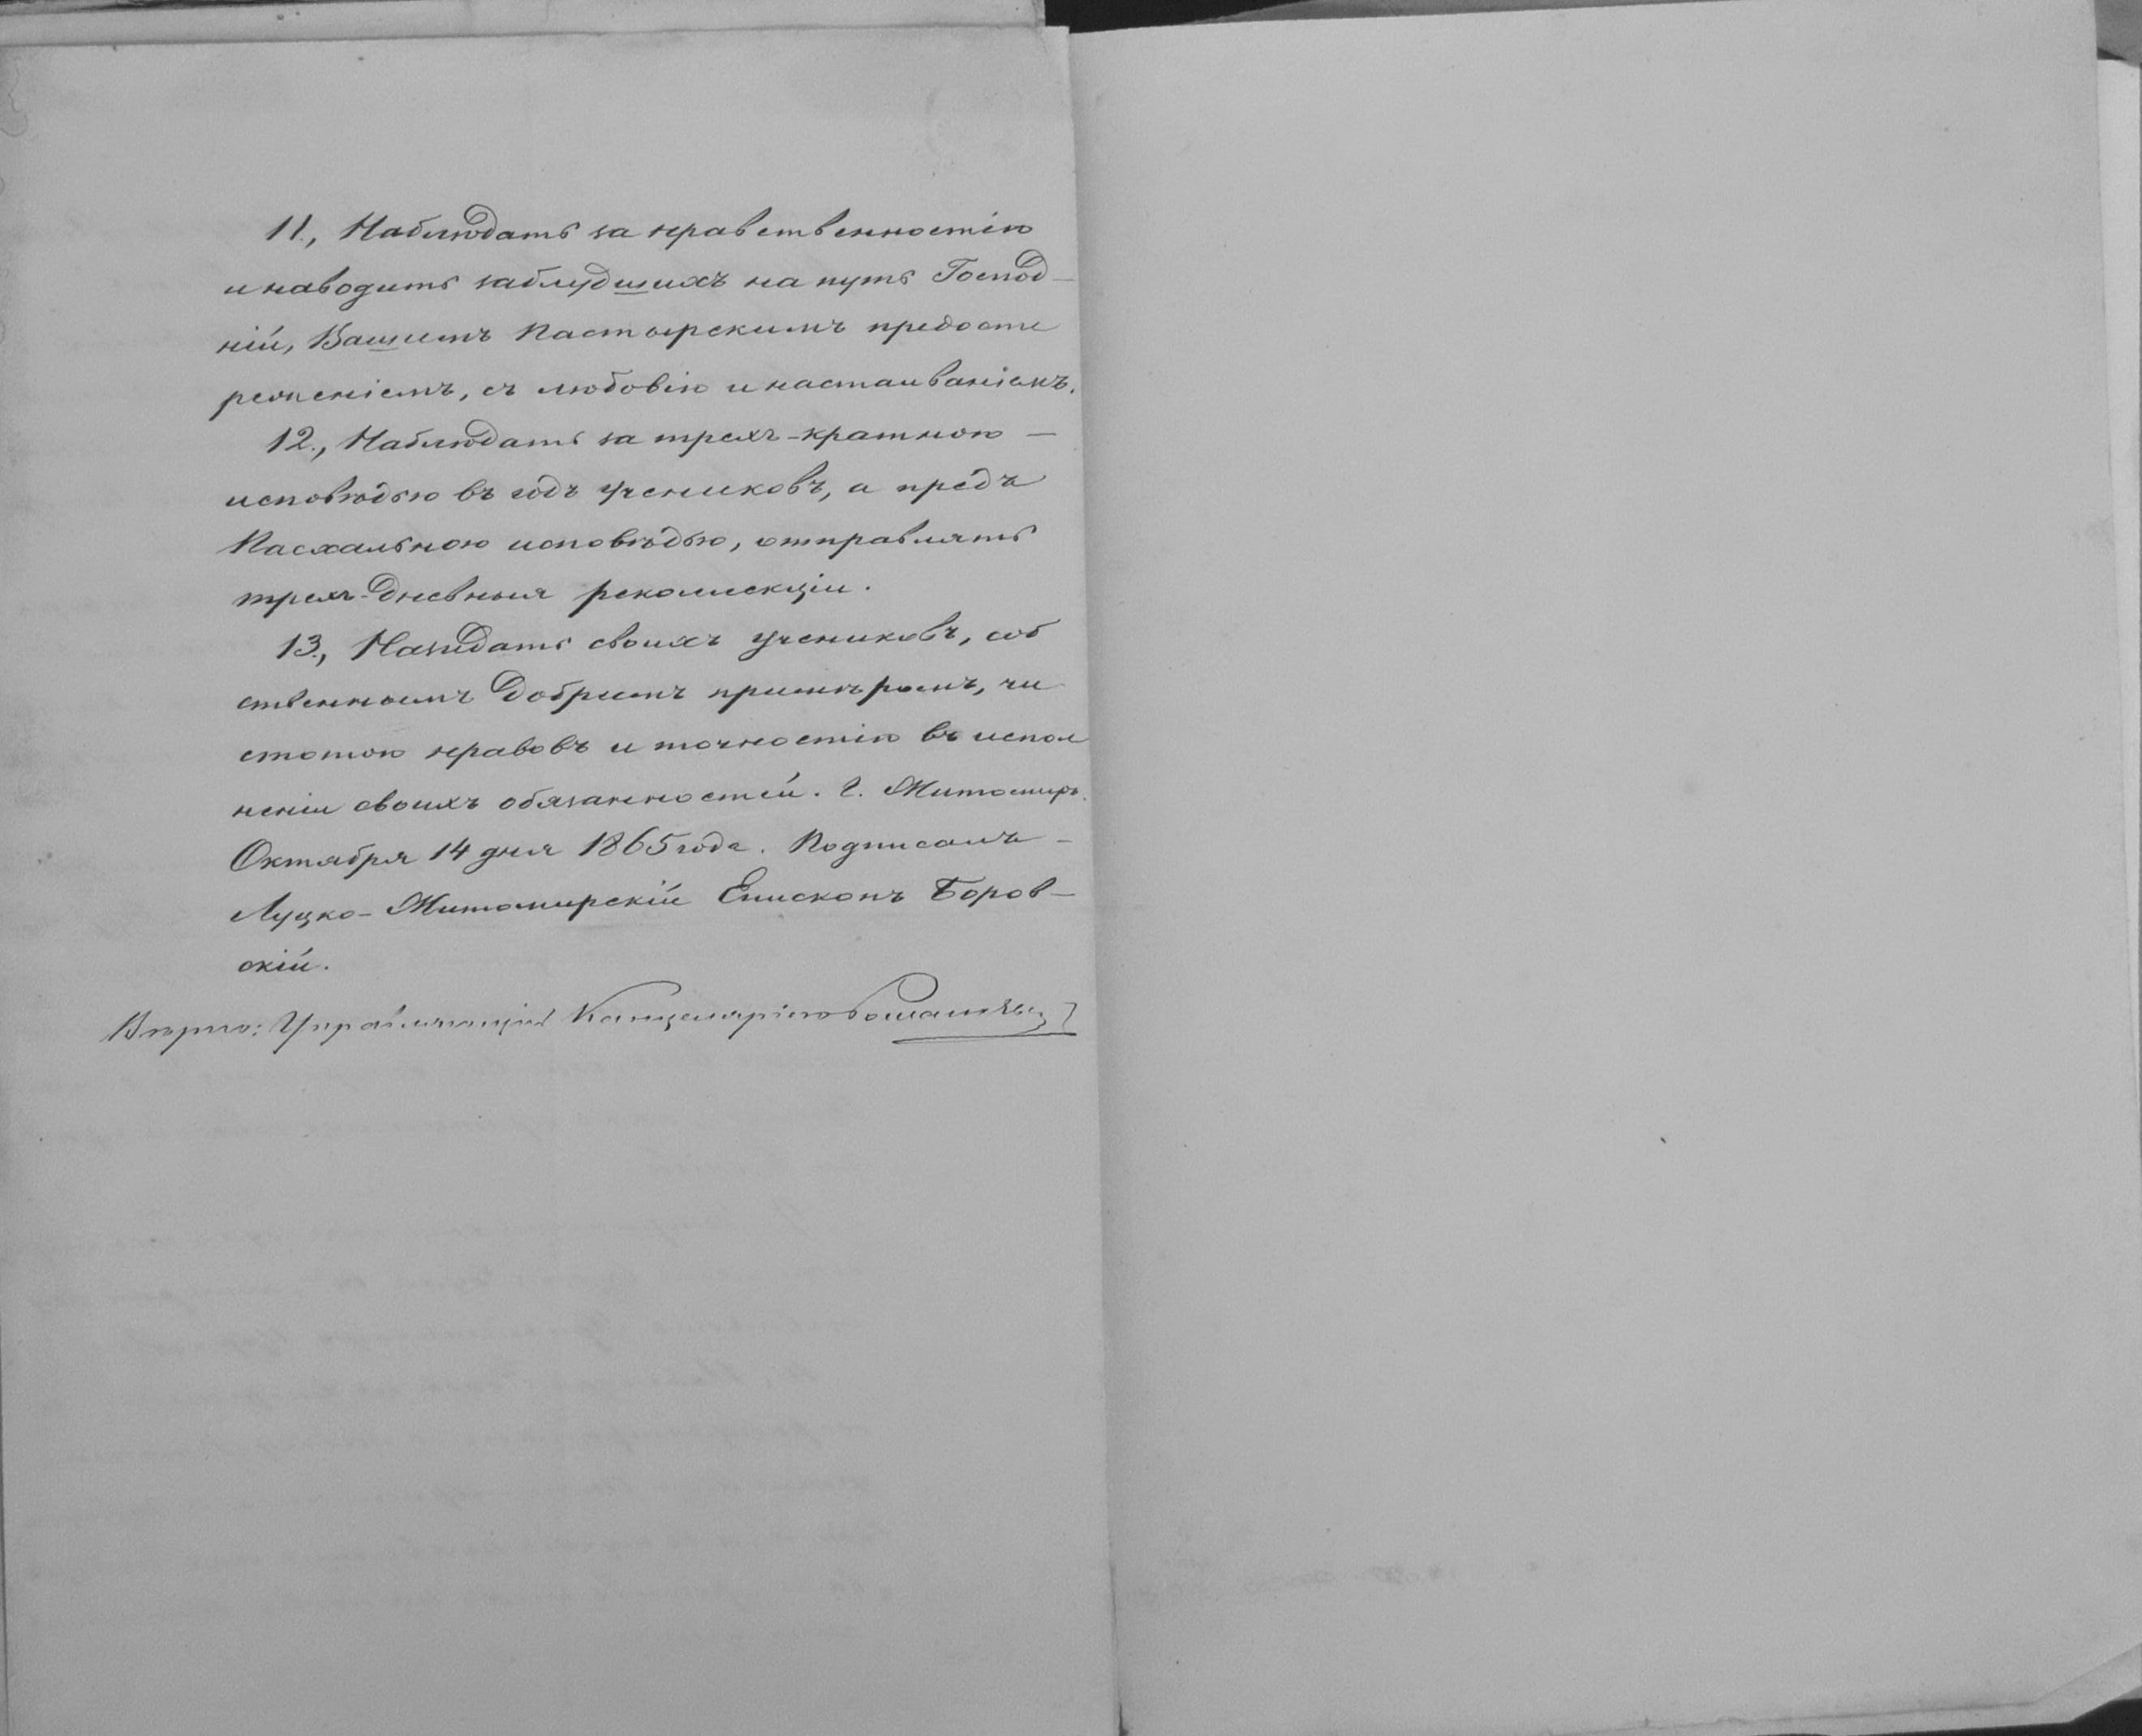 11., Наблюдать за нравственностію
и наводить заблудшихъ на путь Господ-
ній, Вашимъ Пастырскимъ предосте
реженіемъ, съ любовію и настаиваніемъ.
12., Наблюдать за трехъ-кратною —
исповѣдью въ годъ учениковъ, а предъ
Пасхальною исповѣдью, отправлять
трехъ-дневныя реколлекціи.
13., Назидать своихъ учениковъ, соб
ственнымъ добримъ примѣромъ, чи
стотою нравовъ и точностію въ испол
неніи своихъ обязанностей. Г. Житомиръ.
Октября 14 дня 1865 года. Подписалъ —
Луцко-Житомирскій Епископъ Боров-
скій.
Вѣрно: Управляющій Канцеляріею